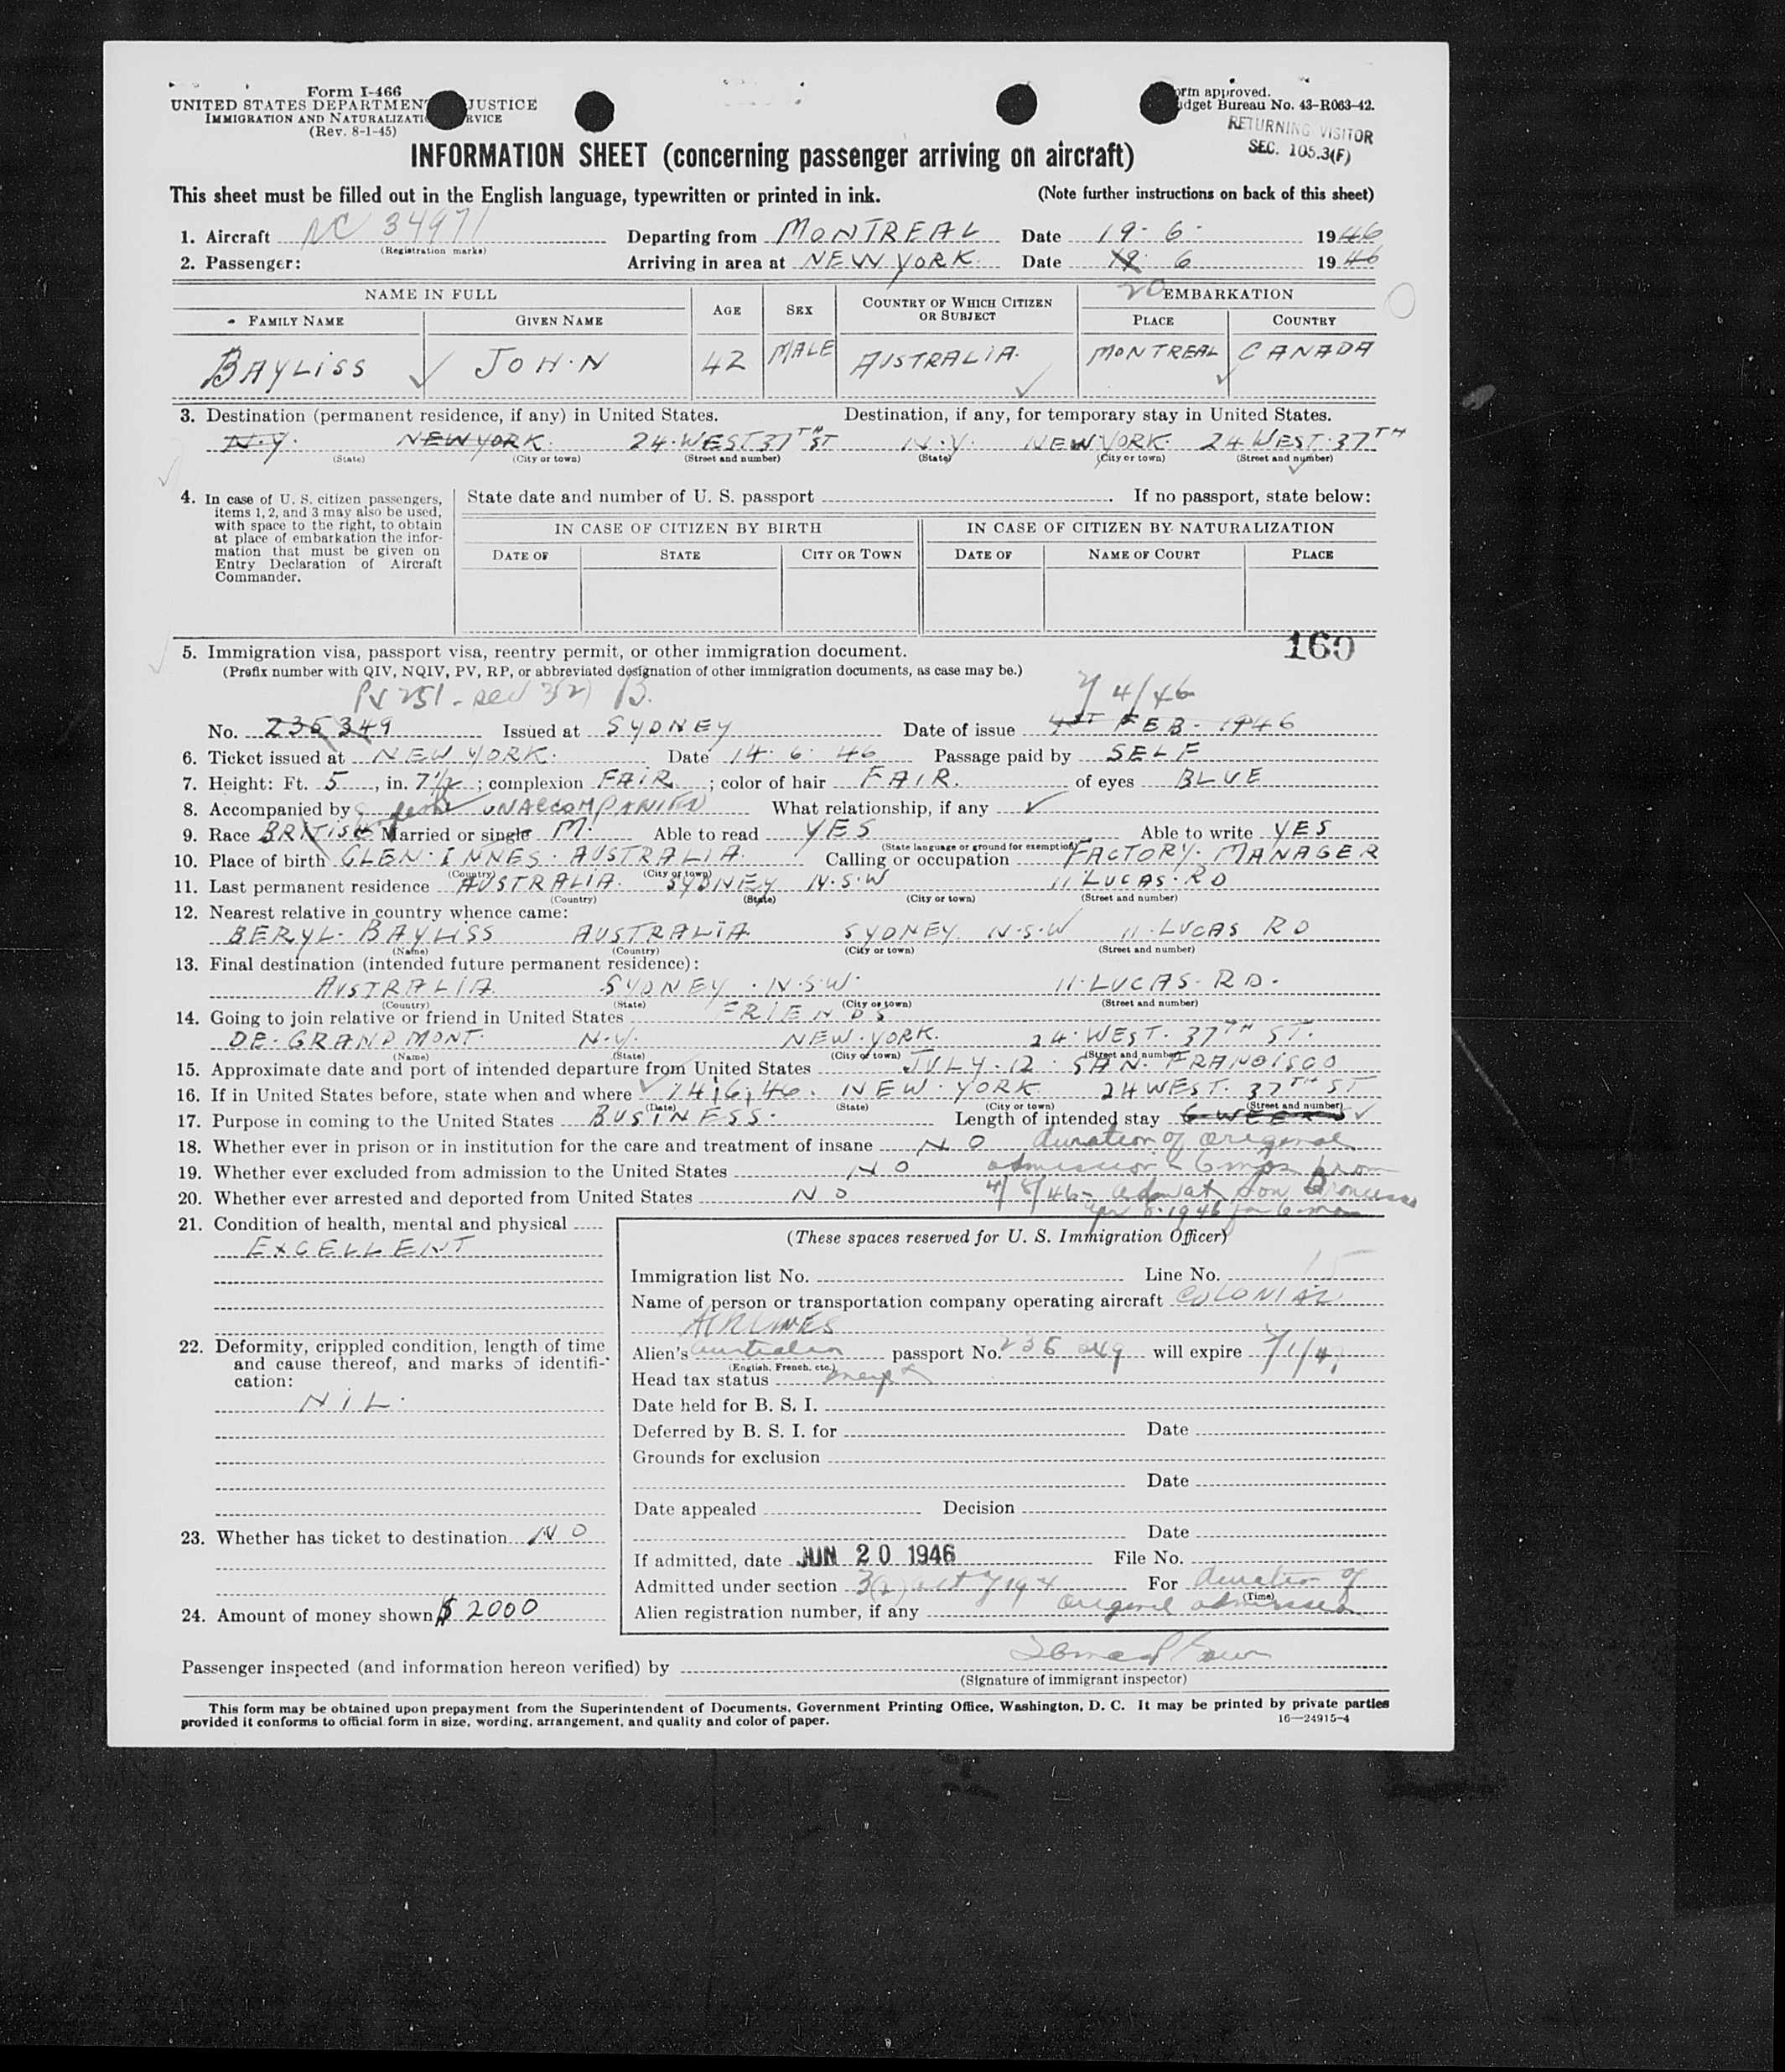 Form I-466
UNITED STATES DEPARTMENT JUSTICE
IMMIGRATION AND NATURALIZATI RVICE
(Rev. 8-1-45)
orm approved.
dget Bureau No. 43-R063-42.
RETURNING VISITOR
SEC. 105.3(F)
INFORMATION SHEET (concerning passenger arriving on aircraft)
This sheet must be filled out in the English language, typewritten or printed in ink. (Note further instructions on back of this sheet)
1. Aircraft NC 34971 Departing from MONTREAL Date 19.6. 1946
(Registration marks)
2. Passenger: Arriving in area at NEW YORK. Date 19 6 1946
20
NAME IN FULL AGE SEX COUNTRY OF WHICH CITIZEN OR SUBJECT EMBARKATION
FAMILY NAME GIVEN NAME PLACE COUNTRY
BAYLISS JOHN 42 MALE AUSTRALIA. MONTREAL CANADA
3. Destination (permanent residence, if any) in United States. Destination, if any, for temporary stay in United States.
N.Y. NEW YORK. 24.WEST 37TH ST N.Y. NEW YORK. 24 WEST.37TH
(State) (City or town) (Street and number) (State) (City or town) (Street and number)
4. In case of U. S. citizen passengers, items 1, 2, and 3 may also be used, with space to the right, to obtain at place of embarkation the information that must be given on Entry Declaration of Aircraft Commander.
State date and number of U. S. passport . If no passport, state below:
IN CASE OF CITIZEN BY BIRTH IN CASE OF CITIZEN BY NATURALIZATION
DATE OF STATE CITY OR TOWN DATE OF NAME OF COURT PLACE
160
5. Immigration visa, passport visa, reentry permit, or other immigration document.
(Prefix number with QIV, NQIV, PV, RP, or abbreviated designation of other immigration documents, as case may be.)
PV 251 - sec 3(2) B. 4/46
No. 235349 Issued at SYDNEY Date of issue 1ST FEB. 1946
6. Ticket issued at NEW YORK. Date 14.6.46 Passage paid by SELF
7. Height: Ft. 5, in. 7½; complexion FAIR; color of hair FAIR. of eyes BLUE
8. Accompanied by UNACCOMPANIED What relationship, if any
9. Race BRITISH Married or single M. Able to read YES Able to write YES
(State language or ground for exemption)
10. Place of birth GLEN.INNES. AUSTRALIA. Calling or occupation FACTORY.MANAGER
(Country) (City or town)
11. Last permanent residence AUSTRALIA. SYDNEY N.S.W 11 LUCAS.RD
(Country) (State) (City or town) (Street and number)
12. Nearest relative in country whence came:
BERYL.BAYLISS AUSTRALIA SYDNEY. N.S.W 11.LUCAS RD
(Name) (Country) (City or town) (Street and number)
13. Final destination (intended future permanent residence):
AUSTRALIA SYDNEY.N.S.W. 11.LUCAS.RD.
(Country) (State) (City or town) (Street and number)
14. Going to join relative or friend in United States FRIENDS
DE.GRANDMONT. N.Y. NEW.YORK. 24.WEST.37TH ST.
(Name) (State) (City or town) (Street and number)
15. Approximate date and port of intended departure from United States JULY.12. SAN.FRANCISCO
16. If in United States before, state when and where 14.6.46. NEW.YORK 24 WEST.37TH ST
(Date) (State) (City or town) (Street and number)
17. Purpose in coming to the United States BUSINESS. Length of intended stay 6 WEEKS
18. Whether ever in prison or in institution for the care and treatment of insane NO duration of original
19. Whether ever excluded from admission to the United States NO admission - 6 mos from
20. Whether ever arrested and deported from United States NO 4/8/46 - adm at San Francisco
Apr 8.1946 for 6 mos
21. Condition of health, mental and physical
EXCELLENT
(These spaces reserved for U. S. Immigration Officer)
Immigration list No. Line No. 15
Name of person or transportation company operating aircraft COLONIAL
AIRLINES
22. Deformity, crippled condition, length of time and cause thereof, and marks of identification:
NIL.
Alien's Australian passport No. 235349 will expire
(English, French, etc.)
Head tax status
Date held for B. S. I.
Deferred by B. S. I. for Date
Grounds for exclusion
Date
Date appealed Decision
23. Whether has ticket to destination NO
Date
If admitted, date JUN 20 1946 File No.
Admitted under section 3(2) act of 1924 For duration of
(Time)
24. Amount of money shown $2000
Alien registration number, if any original admission
Passenger inspected (and information hereon verified) by
(Signature of immigrant inspector)
This form may be obtained upon prepayment from the Superintendent of Documents, Government Printing Office, Washington, D. C. It may be printed by private parties
provided it conforms to official form in size, wording, arrangement, and quality and color of paper. 16—24915-4